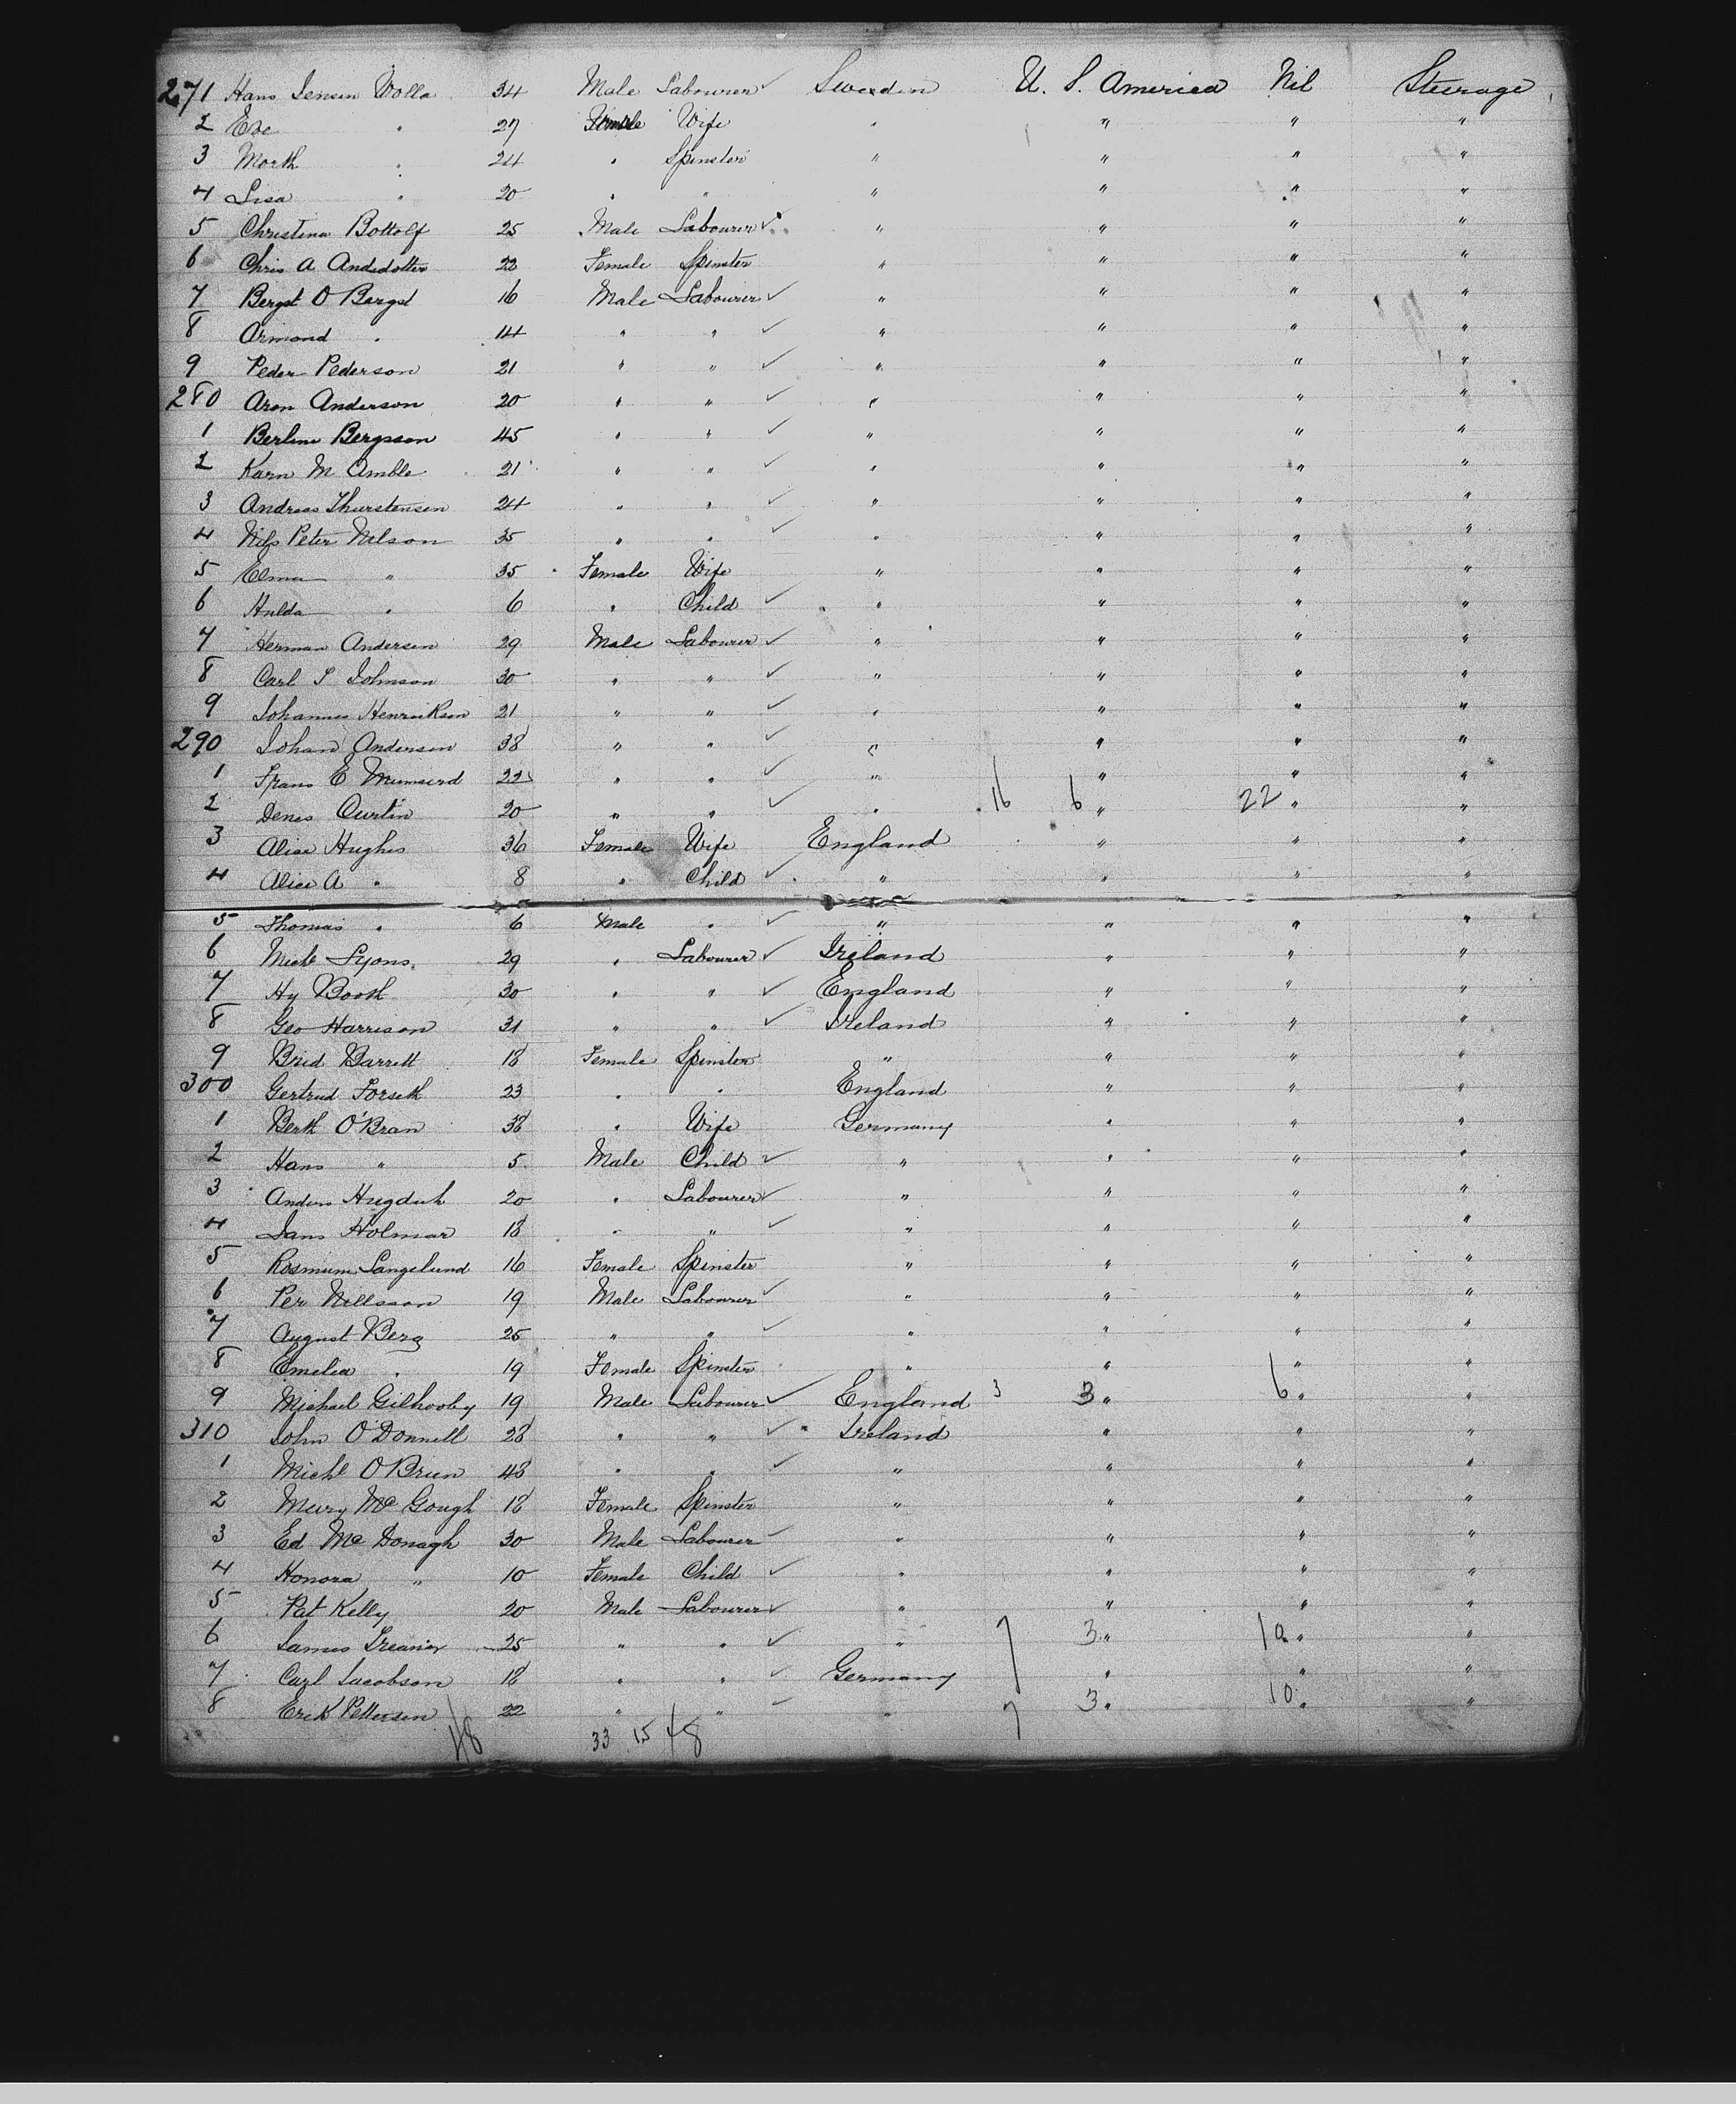 271 Hans Jensen Wolla 34 Male Labourer ✓ Sweden U. S. America Nil Steerage
2 Eve " 27 Female Wife " " " "
3 Marth " 24 " Spinster " " " "
4 Lisa " 20 " " " " " "
5 Christina Bottolf 25 Male Labourer ✓ " " " "
6 Chris A Andsdotter 22 Female Spinster " " " "
7 Bergt O Bergst 16 Male Labourer ✓ " " " "
8 Armond " 14 " " ✓ " " " "
9 Peder Pederson 21 " " ✓ " " " "
280 Aron Anderson 20 " " ✓ " " " "
1 Berline Bergsson 45 " " ✓ " " " "
2 Karn M Amble 21 " " ✓ " " " "
3 Andreas Thurstensen 24 " " ✓ " " " "
4 Nils Peter Nilson 35 " " ✓ " " " "
5 Elma " 35 Female Wife " " " "
6 Hulda " 6 " Child ✓ " " " "
7 Herman Andersen 29 Male Labourer ✓ " " " "
8 Carl S Johnson 30 " " ✓ " " " "
9 Johannes Henrikson 21 " " ✓ " " " "
290 Johan Andersen 38 " " ✓ " " " "
1 Frans E 22 " " ✓ " " " "
2 Denes Curtin 20 " " ✓ " 16 6 " 22 " "
3 Alice Hughes 36 Female Wife England " " "
4 Alice A " 8 " Child ✓ " " " "
5 Thomas " 6 Male " ✓ " " " "
6 Michl Lyons 29 " Labourer ✓ Ireland " " "
7 Hy Booth 30 " " ✓ England " " "
8 Geo Harrison 31 " " ✓ Ireland " " "
9 Brid Barrett 18 Female Spinster " " " "
300 Gertrud Forseth 23 " " England " " "
1 Berth O'Bran 38 " Wife Germany " " "
2 Hans " 5 Male Child ✓ " " " "
3 Anders Hugduh 20 " Labourer ✓ " " " "
4 Jans Holmar 18 " " ✓ " " " "
5 Langelund 16 Female Spinster " " " "
6 Per Nillsson 19 Male Labourer ✓ " " " "
7 August Berg 25 " " ✓ " " " "
8 Emelia " 19 Female Spinster " " 6 " "
9 Michael Gilhooly 19 Male Labourer ✓ England 3 3 " 6 " "
310 John O'Donnell 28 " " ✓ Ireland " " "
1 Michl O'Brien 48 " " ✓ " " " "
2 Mary McGough 18 Female Spinster " " " "
3 Ed McDonagh 30 Male Labourer ✓ " " " "
4 Honora " 10 Female Child ✓ " " " "
5 Pat Kelly 20 Male Labourer ✓ " " " "
6 James Treanor 25 " " ✓ " 7 3 " 10 " "
7 Carl Jacobson 18 " " ✓ Germany " " "
8 Erik Pettersen 22 " " ✓ " 7 3 " 10 " "
48 33 15 48